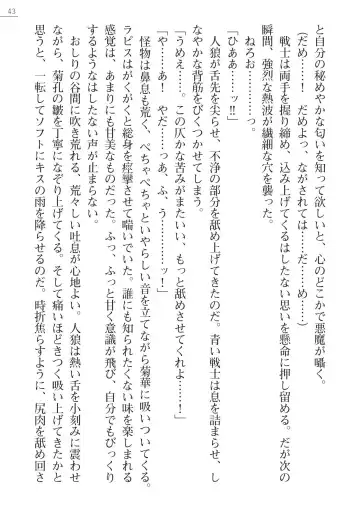 と自分の秘めやかな匂いを知って欲しいと、心のどこかで悪魔が囁く。
（だめ……！　だめよ、ながされては……だ……め）
　戦士は両手を握り締め、込み上げてくるはしたない思いを懸命に押し留める。だが次の
瞬間、強烈な熱波が繊細な穴を襲った。
　ねろお……っ。
「ひああ……ッ!!」
　人狼が舌先を尖らせ、不浄の部分を舐め上げてきたのだ。青い戦士は息を詰まらせ、し
なやかな背筋をびくつかせてしまう。
「うめえ……。この仄かな苦みがたまんねえ……もっと舐めさせてくれよ……！」
「や……あ！　やだ……っあ、ふ、う……ーッ！」
　怪物は鼻息も荒く、ぺちゃぺちゃといやらしい音を立てながら菊華に吸いついてくる。
ラピスはがくがくと総身を痙攣させて喘いでいた。誰にも知られたくない味を楽しまれる
感覚は、あまりにも甘美なものだった。ふっ、ふっと甘く意識が飛び、自分でもびっくり
するようなはしたない声が止まらない。
　おしりの谷間に吹き荒れる、荒々しい吐息が心地よい。人狼は熱い舌を小刻みに震わせ
ながら、菊孔の皺を丁寧になぞり上げてくる。そして痛いほどきつく吸い上げてきたかと
思うと、一転してソフトにキスの雨を降らせるのだ。時折焦らすように、尻肉を舐め回さ
43